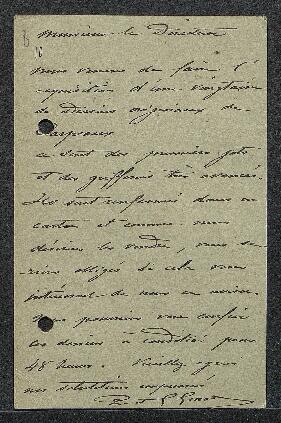 Monsieur le Directeur
nous venons de faire l'
acquisition d'une vingtaine
de dessins originaux de
Carpeaux
ce sont des premiers jets
et des griffonis très avancés.
Ils sont renfermés dans un
carton et comme nous
désirons les vendre, nous se-
rions obligés si cela vous
intéresse de nous en aviser.
Nous pourrions vous confier
les dessins à condition pour
48 heures. Veuillez agréer
nos salutations empressées